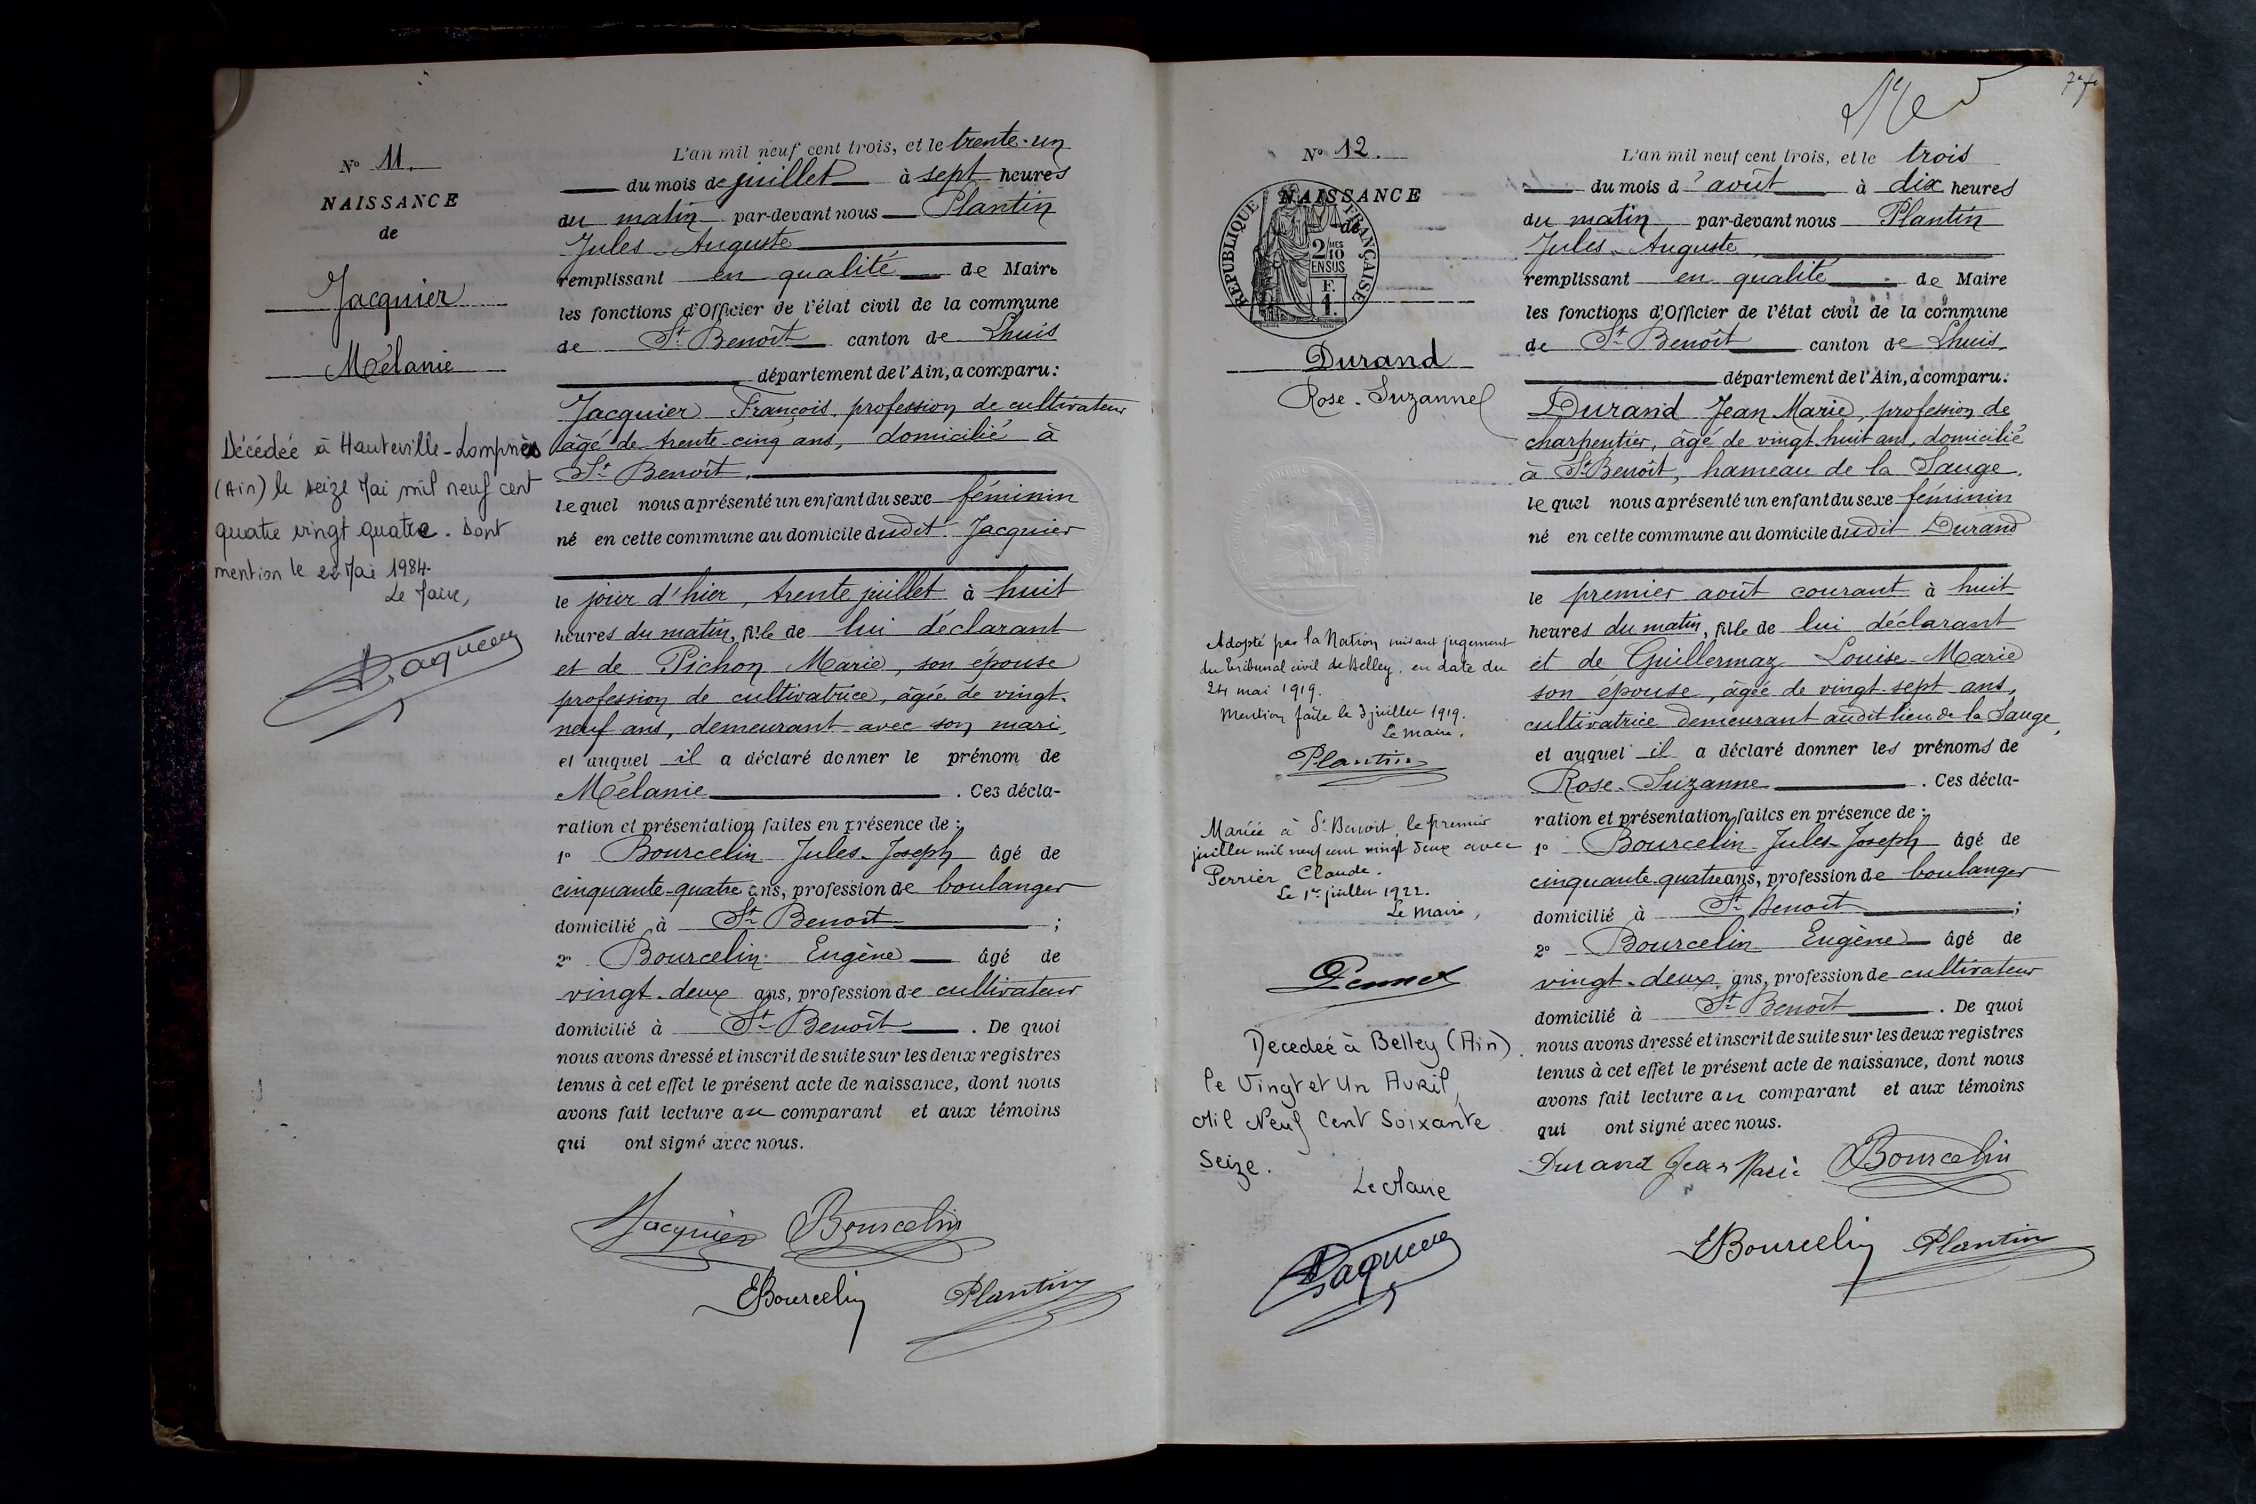 N° 11.
NAISSANCE
de
Jacquier
Mélanie
Décédée à Hauteville-Lompnès
(Ain) le seize Mai mil neuf cent
quatre vingt quatre. Dont
mention le 22 Mai 1984.
Le Maire,
L'an mil neuf cent trois, et le trente-un
du mois de juillet à sept heures
du matin par-devant nous Plantin
Jules-Auguste
remplissant en qualité de Maire
les fonctions d'Officier de l'état civil de la commune
de St Benoît canton de Lhuis
département de l'Ain, a comparu:
Jacquier François, profession de cultivateur
âgé de trente-cinq ans, domicilié à
St Benoît.
lequel nous a présenté un enfant du sexe féminin
né en cette commune au domicile dudit Jacquier
le jour d'hier, trente juillet à huit
heures du matin, fille de lui déclarant
et de Pichon Marie, son épouse
profession de cultivatrice, âgée de vingt-
neuf ans, demeurant avec son mari,
et auquel il a déclaré donner le prénom de
Mélanie. Ces décla-
ration et présentation faites en présence de:
1° Bourcelin Jules-Joseph âgé de
cinquante-quatre ans, profession de boulanger
domicilié à St Benoît;
2° Bourcelin Eugène âgé de
vingt-deux ans, profession de cultivateur
domicilié à St Benoît. De quoi
nous avons dressé et inscrit de suite sur les deux registres
tenus à cet effet le présent acte de naissance, dont nous
avons fait lecture au comparant et aux témoins
qui ont signé avec nous.
Jacquier Bourcelin
EBourcelin Plantin
N° 12.
NAISSANCE
de
RÉPUBLIQUE FRANÇAISE
2/10 MES
EN SUS
F.
1.
Durand
Rose-Suzanne
Adopté par la Nation suivant jugement
du tribunal civil de Belley, en date du
24 mai 1919.
Mention faite le 3 juillet 1919.
Le maire,
Plantin
Mariée à St Benoit, le premier
juillet mil neuf cent vingt deux avec
Perrier Claude.
Le 1er juillet 1922.
Le Maire,
Décedeé à Belley (Ain)
le Vingt et Un Avril
Mil Neuf Cent Soixante
Seize.
Le Maire
L'an mil neuf cent trois, et le trois
du mois d'août à dix heures
du matin par-devant nous Plantin
Jules-Auguste
remplissant en qualité de Maire
les fonctions d'Officier de l'état civil de la commune
de St Benoît canton de Lhuis
département de l'Ain, a comparu:
Durand Jean Marie, profession de
charpentier, âgé de vingt-huit ans, domicilié
à St Benoît, hameau de la Sauge.
lequel nous a présenté un enfant du sexe féminin
né en cette commune au domicile dudit Durand
le premier août courant à huit
heures du matin, fille de lui déclarant
et de Guillermaz Louise-Marie
son épouse, âgée de vingt-sept ans,
cultivatrice demeurant audit lieu de la Sauge,
et auquel il a déclaré donner les prénoms de
Rose-Suzanne. Ces décla-
ration et présentation faites en présence de:
1° Bourcelin Jules-Joseph âgé de
cinquante-quatre ans, profession de boulanger
domicilié à St Benoît;
2° Bourcelin Eugène âgé de
vingt-deux ans, profession de cultivateur
domicilié à St Benoît. De quoi
nous avons dressé et inscrit de suite sur les deux registres
tenus à cet effet le présent acte de naissance, dont nous
avons fait lecture au comparant et aux témoins
qui ont signé avec nous.
Durand Jean Marie Bourcelin
EBourcelin Plantin